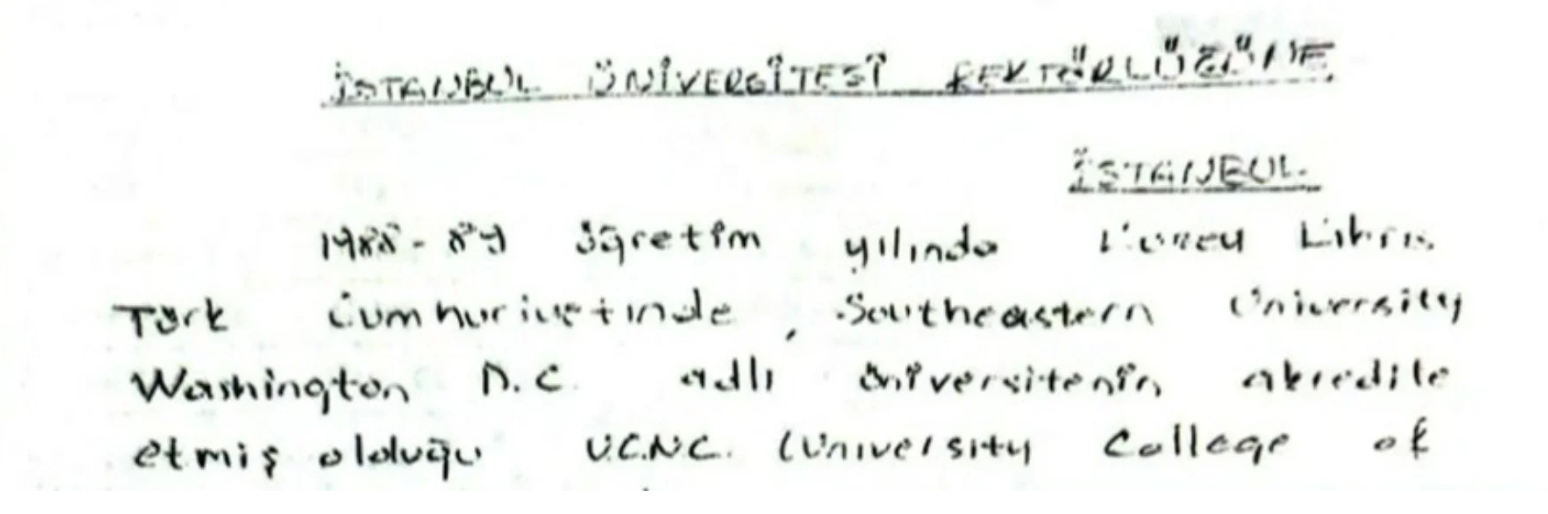 İSTANBUL ÜNİVERSİTESİ REKTÖRLÜĞÜNE
İSTANBUL
1988-89 öğretim yılında Kuzey Kıbrıs
Türk Cumhuriyetinde, Southeastern University
Washington D.C. adlı üniversitenin akredite
etmiş olduğu U.C.N.C. (University College of